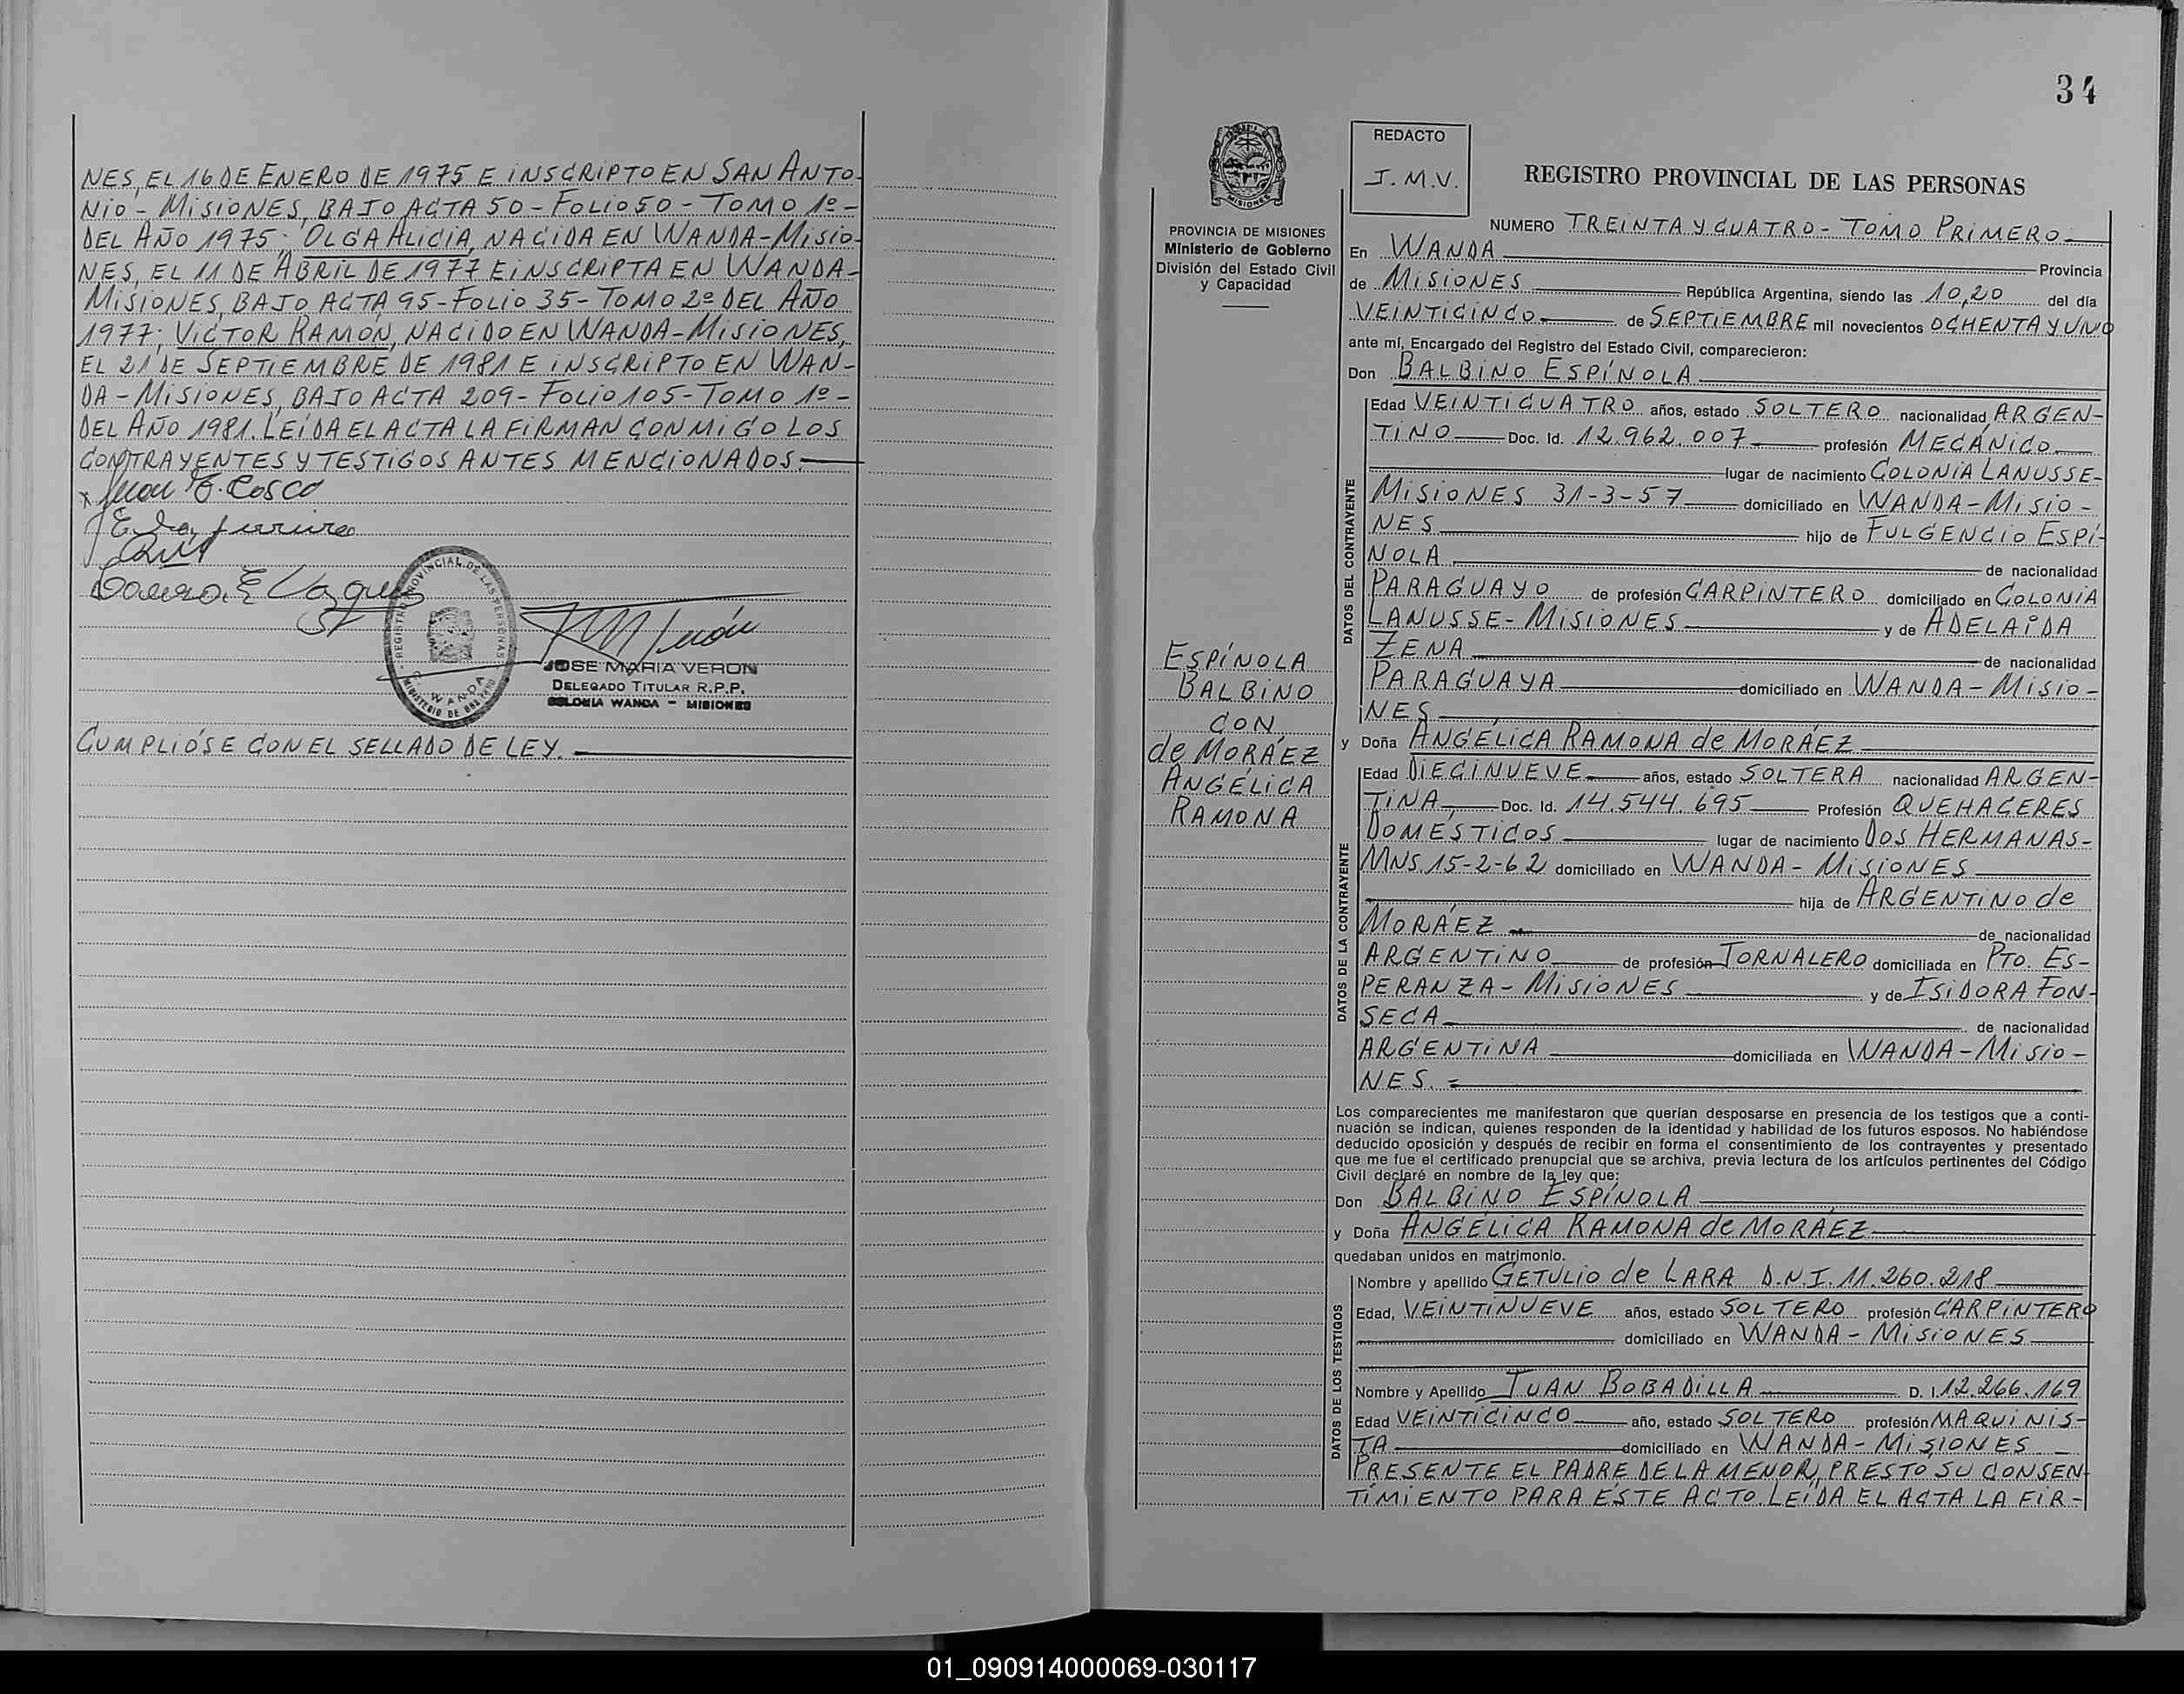 NES, EL 16 DE ENERO DE 1975 E INSCRIPTO EN SAN ANTO-
NIO - MISIONES, BAJO ACTA 50 - FOLIO 50 - TOMO 1º -
DEL AÑO 1975; OLGA ALICIA, NACIDA EN WANDA - MISIO-
NES, EL 11 DE ABRIL DE 1977 E INSCRIPTA EN WANDA -
MISIONES, BAJO ACTA 95 - FOLIO 35 - TOMO 2º DEL AÑO
1977; VICTOR RAMÓN, NACIDO EN WANDA - MISIONES,
EL 21 DE SEPTIEMBRE DE 1981 E INSCRIPTO EN WAN-
DA - MISIONES, BAJO ACTA 209 - FOLIO 105 - TOMO 1º -
DEL AÑO 1981. LEÍDA EL ACTA LA FIRMAN CONMIGO LOS
CONTRAYENTES Y TESTIGOS ANTES MENCIONADOS.
REGISTRO PROVINCIAL DE LAS PERSONAS
WANDA
JOSE MARIA VERON
DELEGADO TITULAR R.P.P.
COLONIA WANDA - MISIONES
CUMPLIÓSE CON EL SELLADO DE LEY.
34
REDACTO
J.M.V.
MISIONES
PROVINCIA DE MISIONES
Ministerio de Gobierno
División del Estado Civil
y Capacidad
ESPÍNOLA
BALBINO
CON
de MORÁEZ
ANGÉLICA
RAMONA
REGISTRO PROVINCIAL DE LAS PERSONAS
NUMERO TREINTA Y CUATRO - TOMO PRIMERO -
En WANDA Provincia
de MISIONES República Argentina, siendo las 10,20 del día
VEINTICINCO de SEPTIEMBRE mil novecientos OCHENTA Y UNO
ante mí, Encargado del Registro del Estado Civil, comparecieron:
Don BALBINO ESPÍNOLA
DATOS DEL CONTRAYENTE
Edad VEINTICUATRO años, estado SOLTERO nacionalidad ARGEN-
TINO Doc. Id. 12.962.007 profesión MECÁNICO
lugar de nacimiento COLONIA LANUSSE -
MISIONES 31-3-57 domiciliado en WANDA - MISIO -
NES hijo de FULGENCIO ESPÍ-
NOLA de nacionalidad
PARAGUAYO de profesión CARPINTERO domiciliado en COLONIA
LANUSSE - MISIONES y de ADELAIDA
ZENA de nacionalidad
PARAGUAYA domiciliado en WANDA - MISIO -
NES
y Doña ANGÉLICA RAMONA de MORÁEZ
DATOS DE LA CONTRAYENTE
Edad DIECINUEVE años, estado SOLTERA nacionalidad ARGEN-
TINA Doc. Id. 14.544.695 Profesión QUEHACERES
DOMÉSTICOS lugar de nacimiento DOS HERMANAS -
MNS. 15-2-62 domiciliado en WANDA - MISIONES
hija de ARGENTINO de
MORÁEZ de nacionalidad
ARGENTINO de profesión JORNALERO domiciliada en PTO. ES-
PERANZA - MISIONES y de ISIDORA FON-
SECA de nacionalidad
ARGENTINA domiciliada en WANDA - MISIO -
NES.
Los comparecientes me manifestaron que querían desposarse en presencia de los testigos que a conti-
nuación se indican, quienes responden de la identidad y habilidad de los futuros esposos. No habiéndose
deducido oposición y después de recibir en forma el consentimiento de los contrayentes y presentado
que me fue el certificado prenupcial que se archiva, previa lectura de los artículos pertinentes del Código
Civil declaré en nombre de la ley que:
Don BALBINO ESPÍNOLA
y Doña ANGÉLICA RAMONA de MORÁEZ
quedaban unidos en matrimonio.
DATOS DE LOS TESTIGOS
Nombre y apellido GETULIO de LARA D.N.I. 11.260.218
Edad, VEINTINUEVE años, estado SOLTERO profesión CARPINTERO
domiciliado en WANDA - MISIONES
Nombre y Apellido JUAN BOBADILLA D. I. 12.266.169
Edad VEINTICINCO año, estado SOLTERO profesión MAQUINIS-
TA domiciliado en WANDA - MISIONES
PRESENTE EL PADRE DE LA MENOR, PRESTÓ SU CONSEN-
TIMIENTO PARA ÉSTE ACTO. LEÍDA EL ACTA LA FIR-
01_090914000069-030117